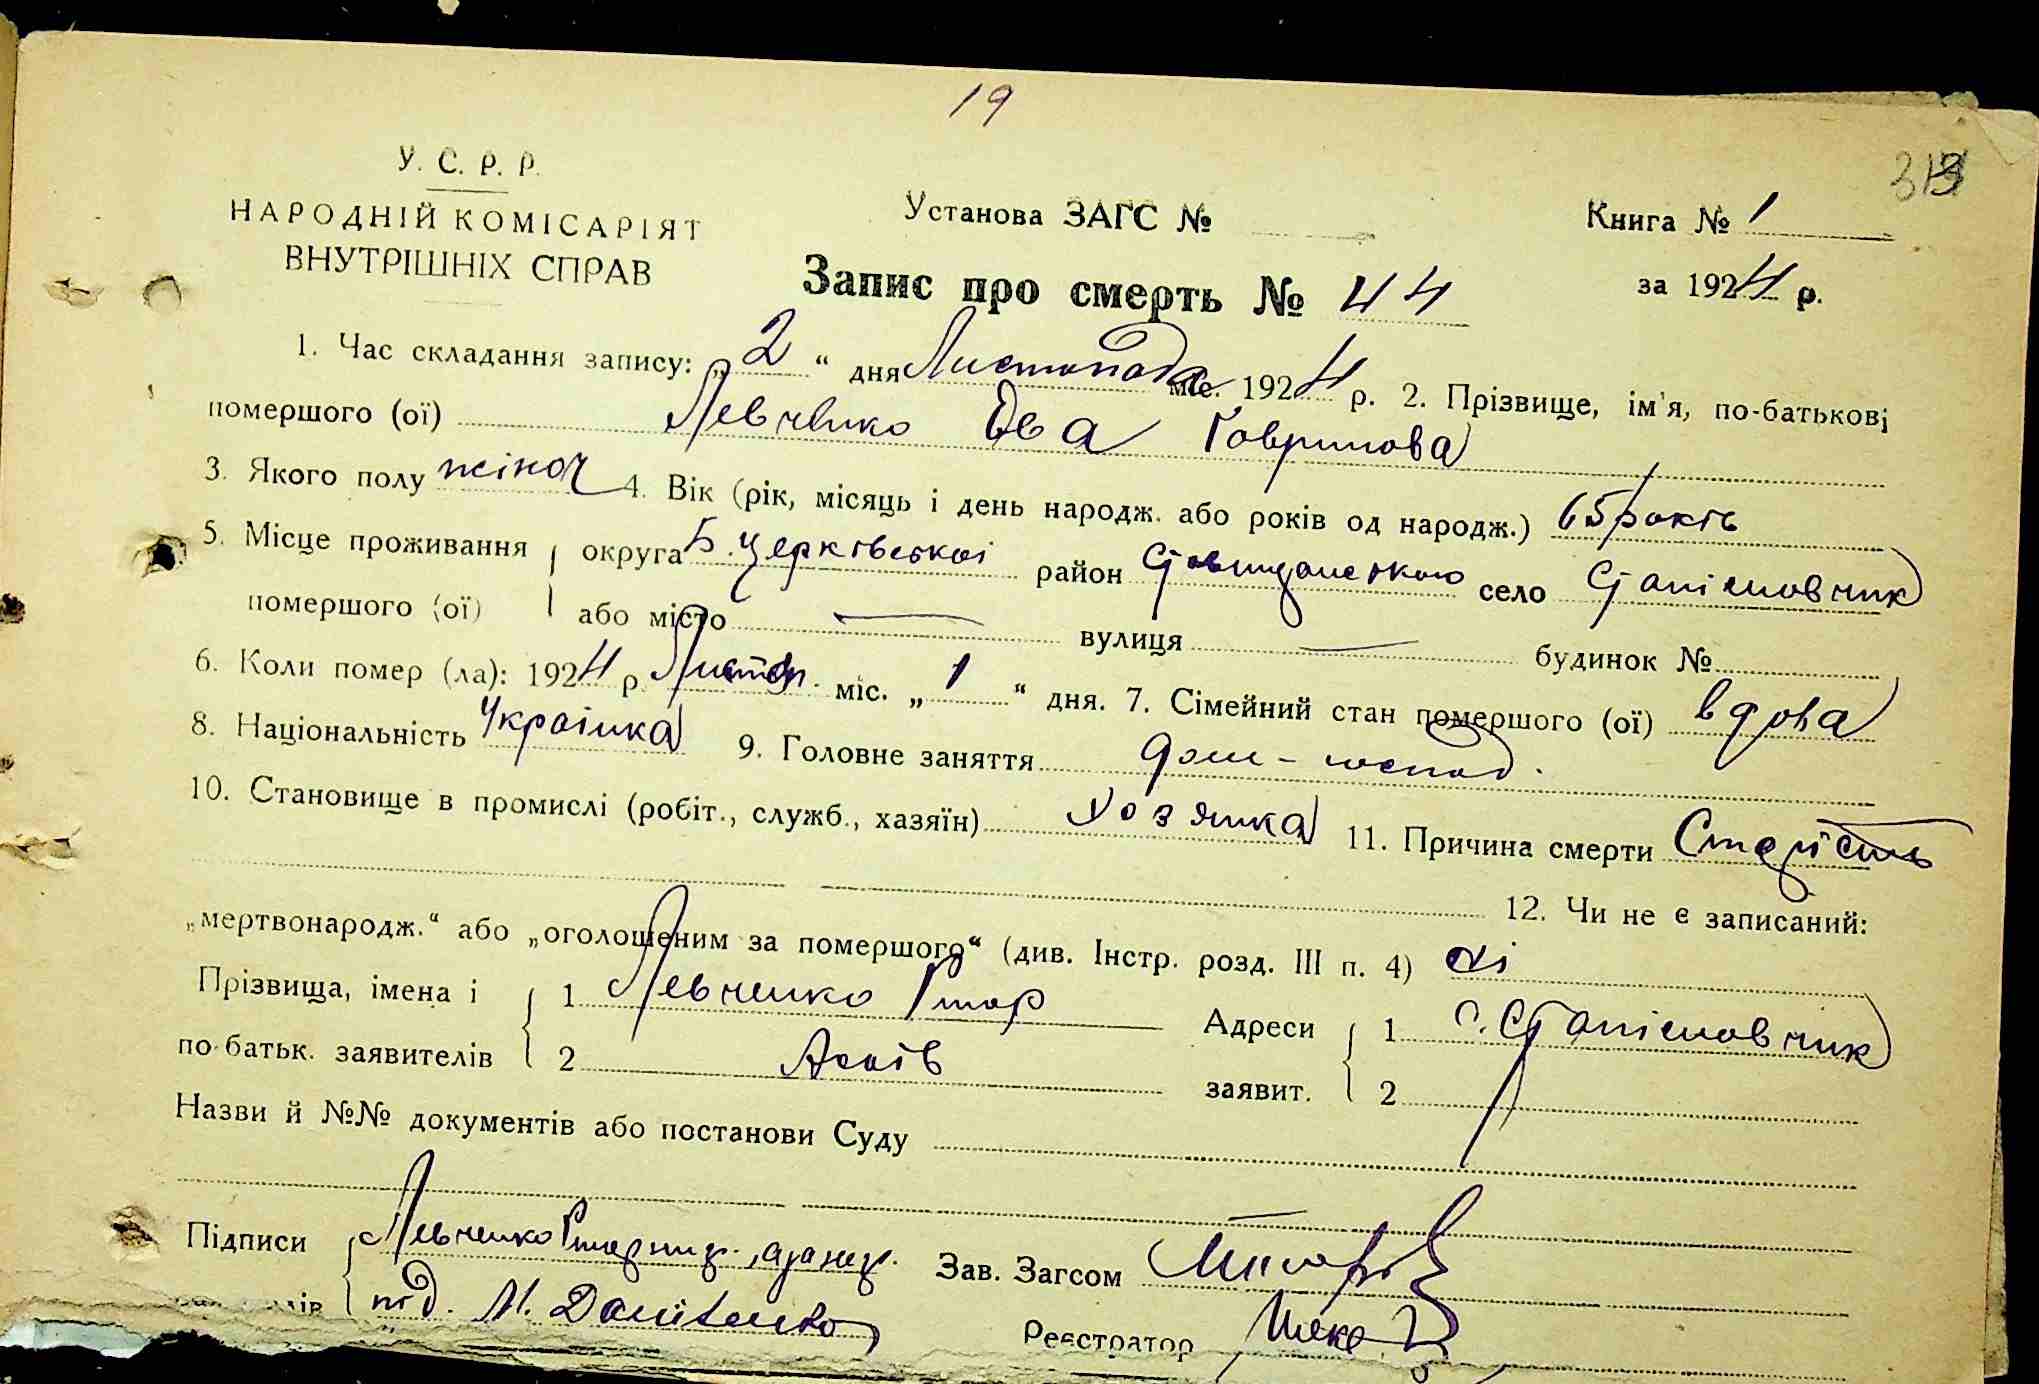 19
313
У. С. Р. Р.
НАРОДНІЙ КОМІСАРІЯТ
ВНУТРІШНІХ СПРАВ
Установа ЗАГС №
Книга № 1
за 1924 р.
Запис про смерть № 44
1. Час складання запису: „ 2 “ дня Листопада міс. 1924 р. 2. Прізвище, ім'я, по-батькові
помершого (ої) Левченко Ева Гаврилова
3. Якого полу жіноч 4. Вік (рік, місяць і день народж. або років од народж.) 65 років
5. Місце проживання округа Б. Церківської район Ставищанського село Станіславчик
помершого (ої) або місто — вулиця — будинок №
6. Коли помер (ла): 1924 р. Листоп. міс. „ 1 “ дня. 7. Сімейний стан помершого (ої) вдова
8. Національність Українка 9. Головне заняття дом-господ.
10. Становище в промислі (робіт., служб., хазяїн) Хозяйка 11. Причина смерти Старість
12. Чи не є записаний:
„мертвонародж.“ або „оголошеним за помершого“ (див. Інстр. розд. III п. 4) ні
Прізвища, імена і 1 Левченко Адреси 1 с. Станіславчик
по-батьк. заявителів 2 заявит. 2
Назви й №№ документів або постанови Суду
Підписи Левченко Зав. Загсом
лів М. Даніленко
Реєстратор